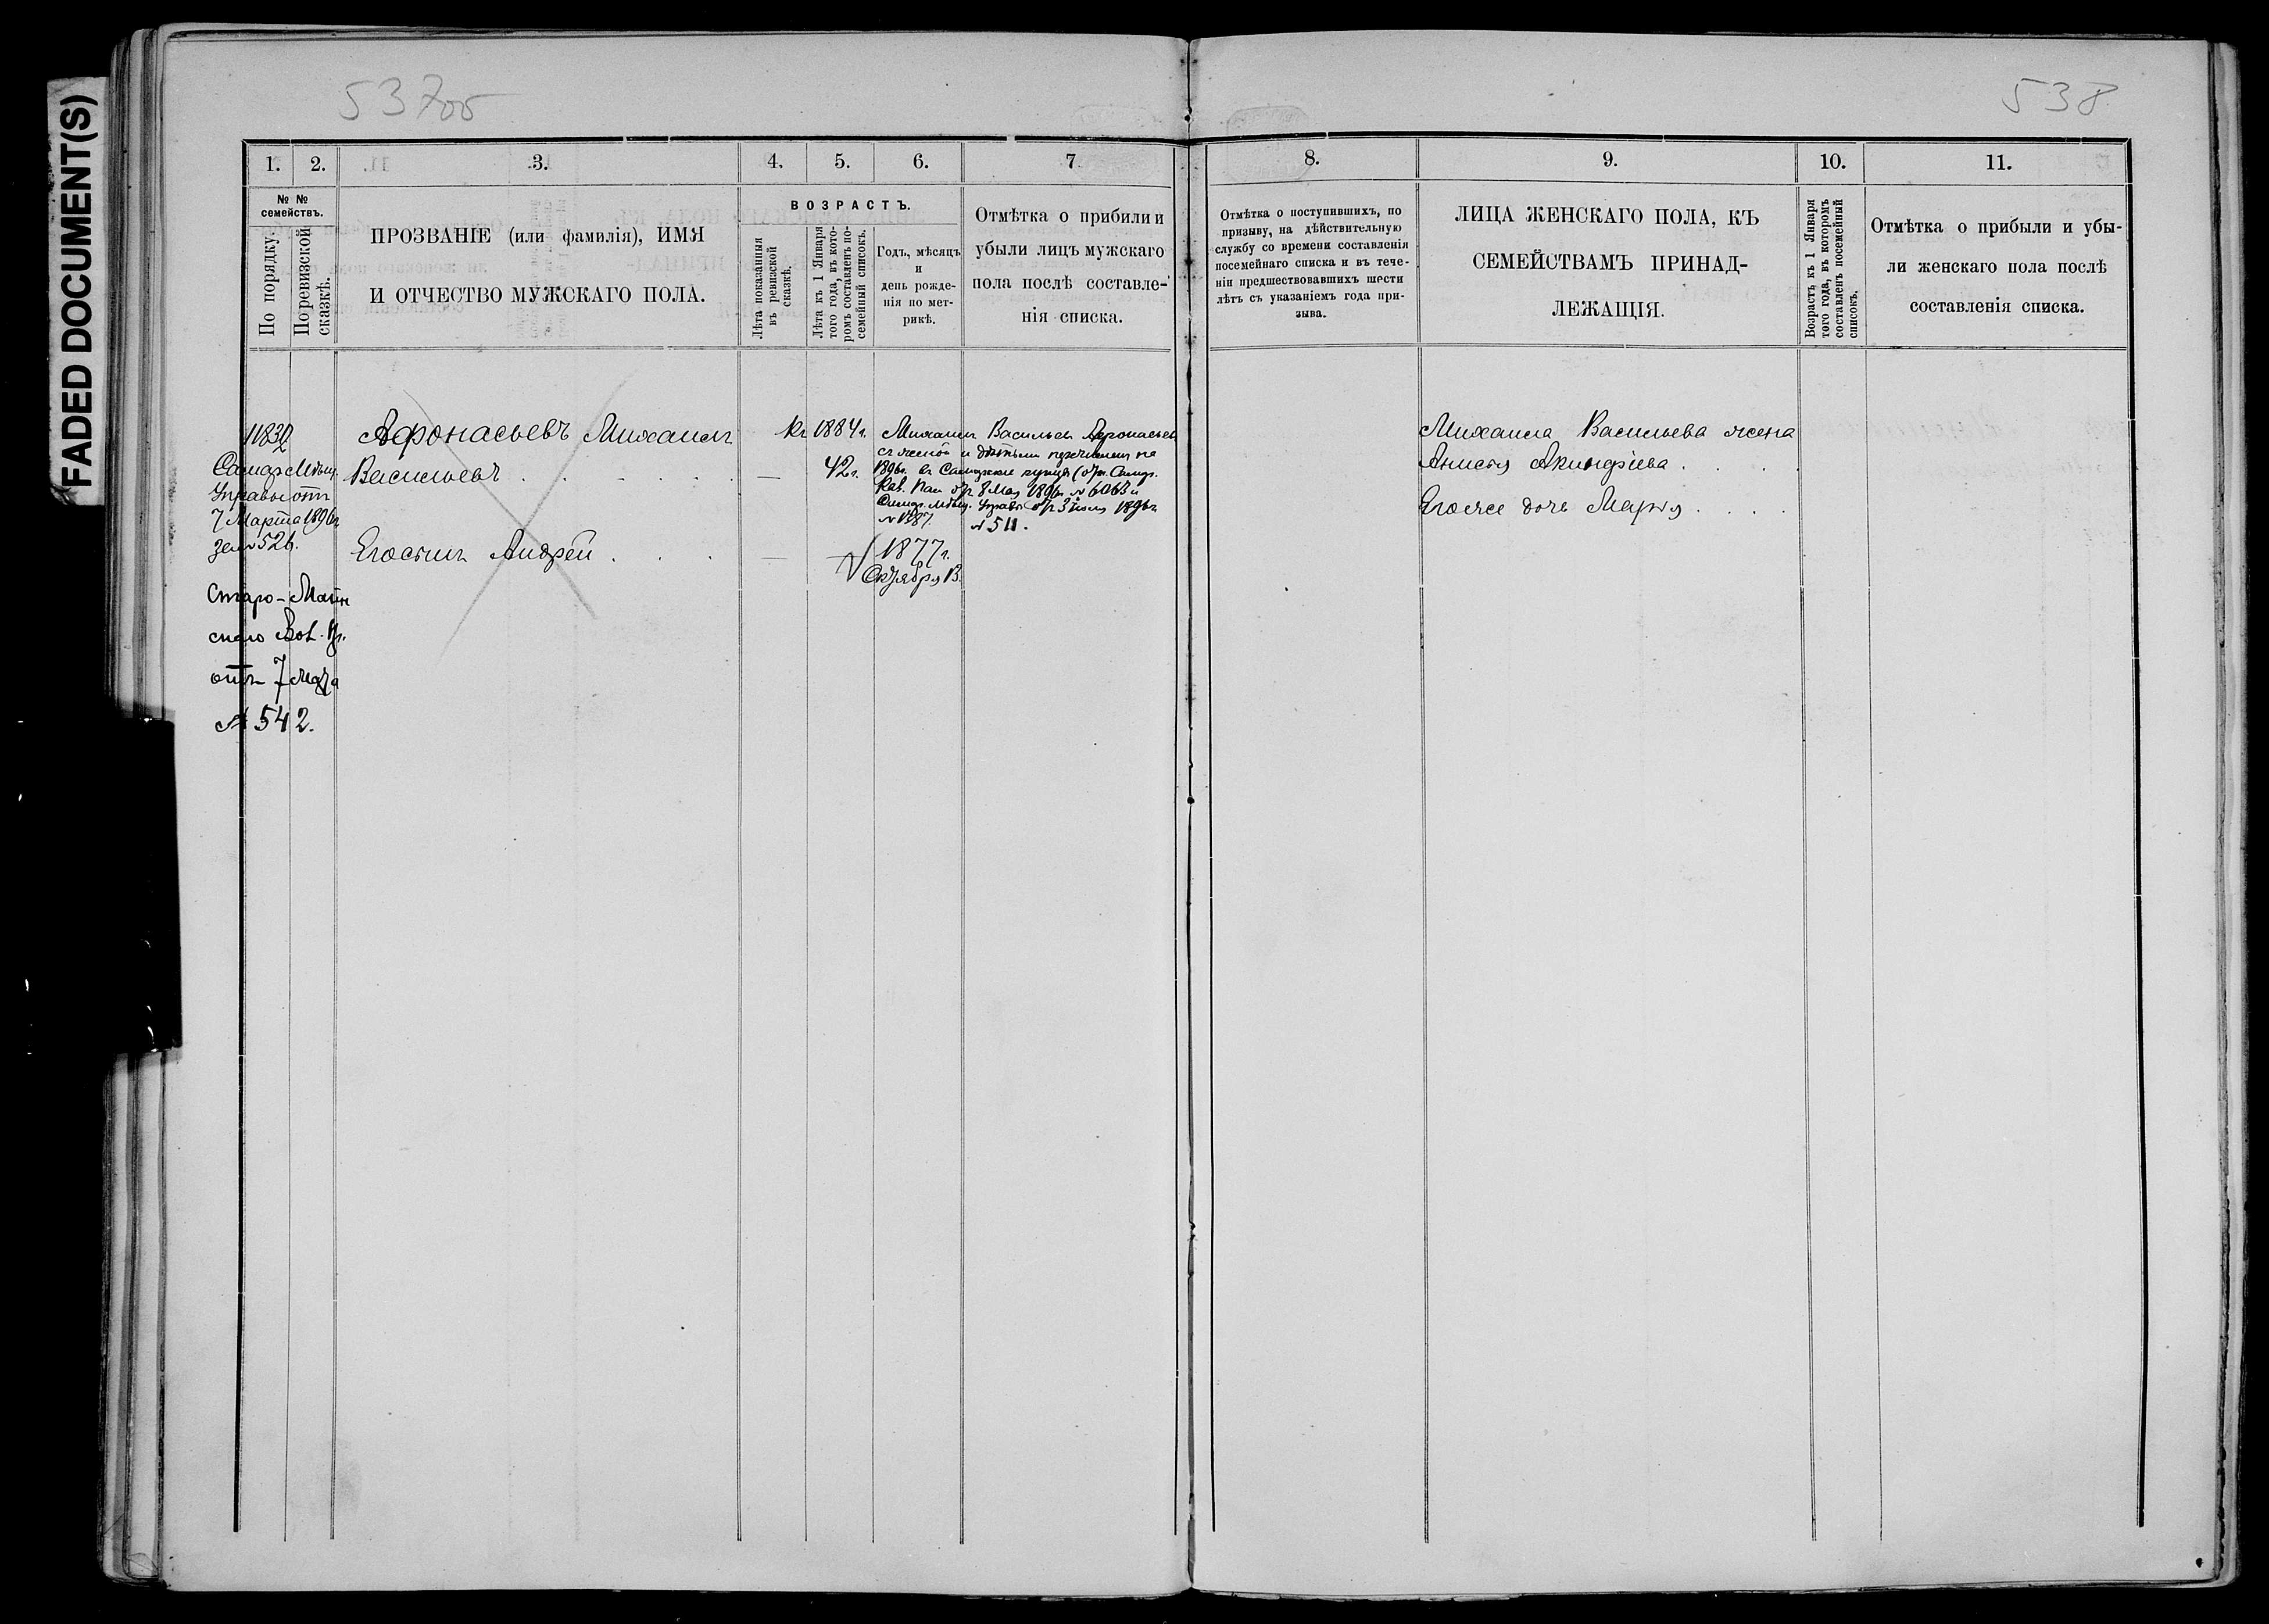 FADED DOCUMENT(S)
537об
538
1.
2.
3.
4.
5.
6.
7
№ №
семействъ.
По порядку.
По ревизской
сказкѣ.
ПРОЗВАНІЕ (или фамилія), ИМЯ
И ОТЧЕСТВО МУЖСКАГО ПОЛА.
ВОЗРАСТЪ.
Лѣта показанныя
въ ревизской
сказкѣ.
Лѣта къ 1 Января
того года, въ кото-
ромъ составленъ по-
семейный списокъ.
Годъ, мѣсяцъ
и
день рожде-
нія по мет-
рикѣ.
Отмѣтка о прибыли и
убыли лицъ мужскаго
пола послѣ составле-
нія списка.
11832
Самар Мѣщ.
Управы отъ
7 Марта 1896г.
за № 526.
Старо-Майн
скаго Вол. Пр.
отъ 7 Мая
№ 542.
Афонасьевъ Михаилъ
Васильевъ
Его сынъ Андрей
1884г.
42г.
Михаилъ Васильевъ Афонасьевъ
съ женой и дѣтьми перечисленъ на
1896г. въ Самарские купцы (от. Самар.
Каз. Пал. от 8 Мая 1896г. № 6063 и
Самар. Мѣщ. Управы от 3 Июля 1896г.
№ 1387
№ 511.
1877г.
Октября 13.
8.
9.
10.
11.
Отмѣтка о поступившихъ, по
призыву, на дѣйствительную
службу со времени составленія
посемейнаго списка и въ тече-
ніи предшествовавшихъ шести
лѣтъ съ указаніемъ года при-
зыва.
ЛИЦА ЖЕНСКАГО ПОЛА, КЪ
СЕМЕЙСТВАМЪ ПРИНАД-
ЛЕЖАЩІЯ.
Возрастъ къ 1 Января
того года, въ которомъ
составленъ посемейный
списокъ.
Отмѣтка о прибыли и убы-
ли женскаго пола послѣ
составленія списка.
Михаила Васильева жена
Анисья Акиндіева
Его же дочь Марья